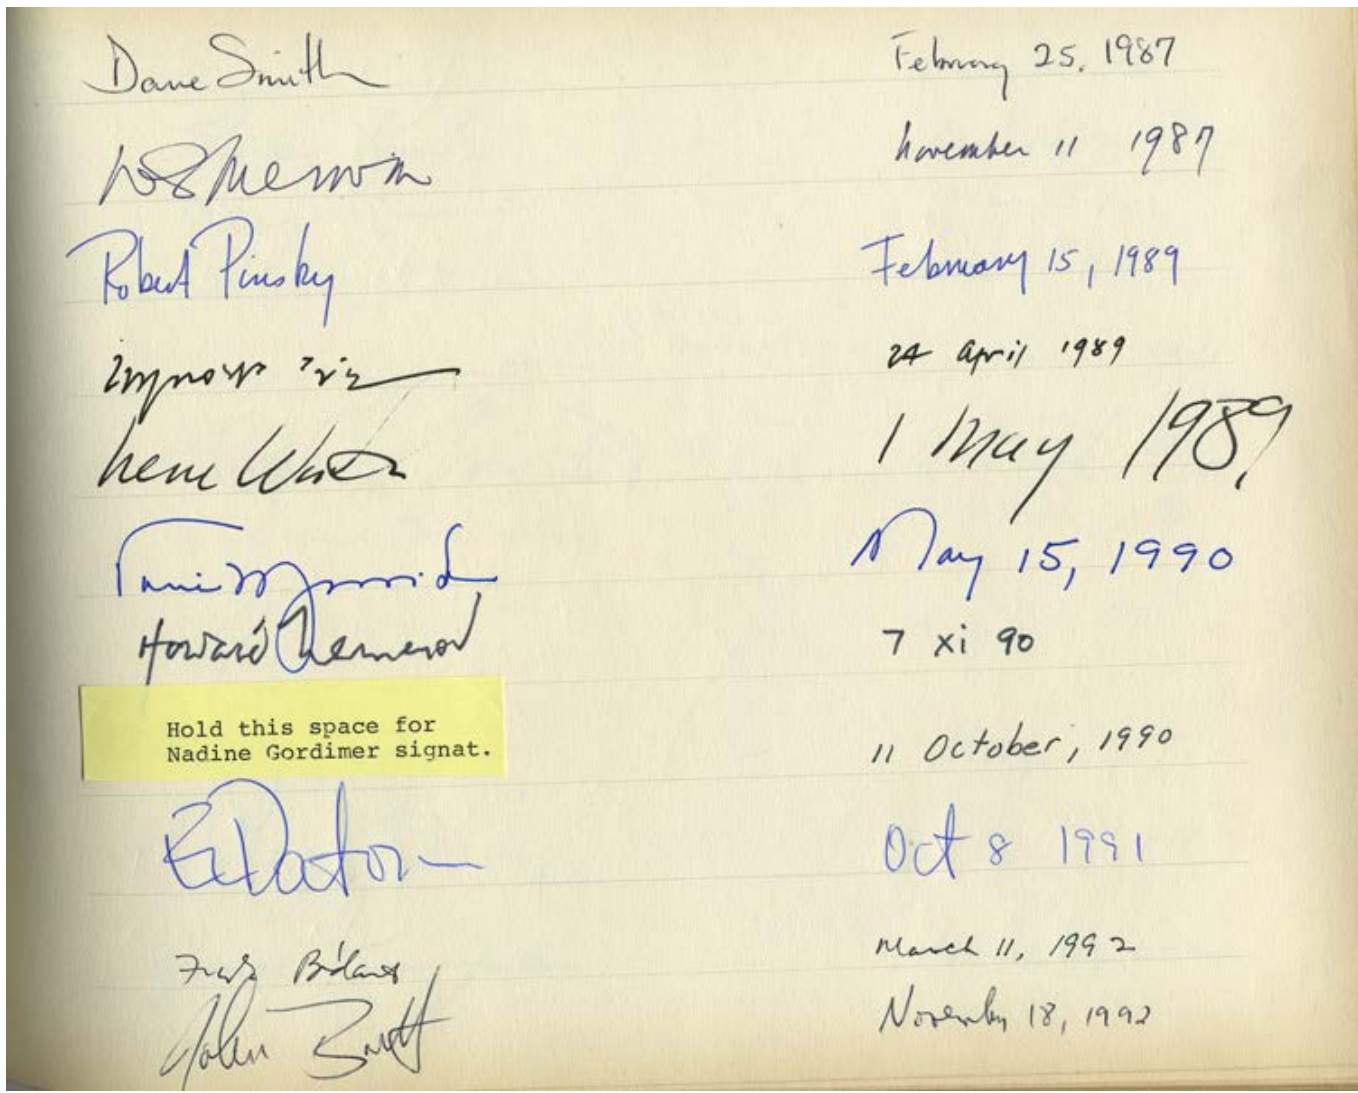 Dave Smith February 25, 1987
WS Merwin november 11 1987
Robert Pinsky February 15, 1989
24 april 1989
Irene 1 May 1989
Toni Morrison May 15, 1990
Howard Nemerov 7 xi 90
Hold this space for
Nadine Gordimer signat.
11 October, 1990
Oct 8 1991
Frank Bidart March 11, 1992
John November 18, 1992